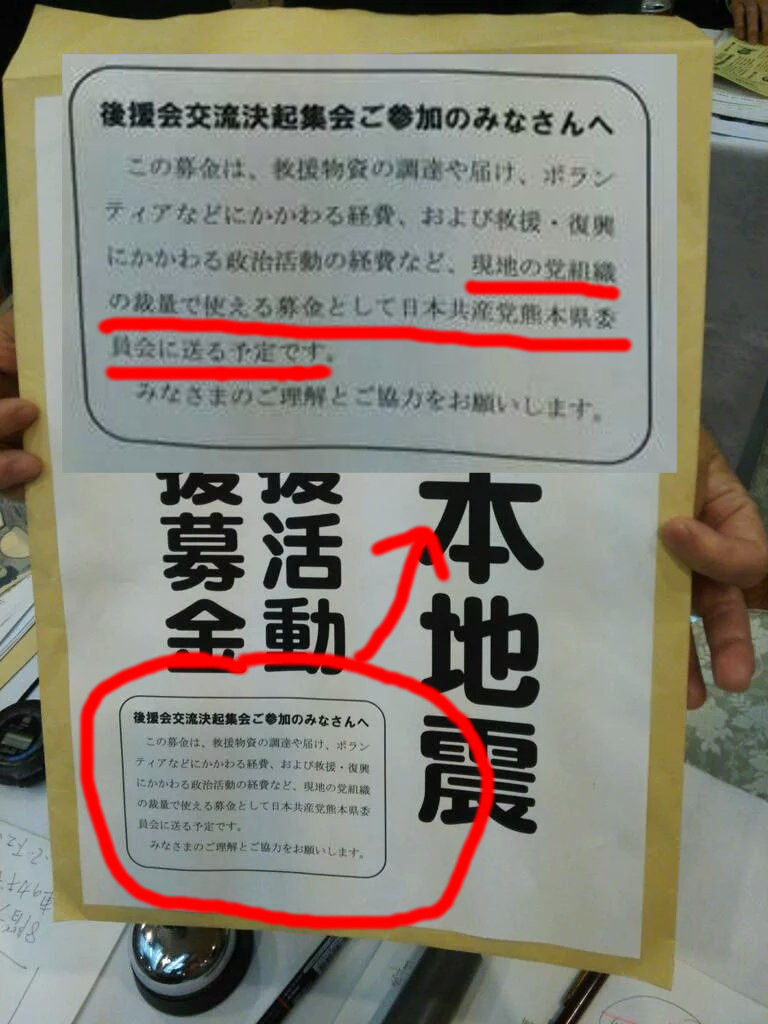 後援会交流決起集会ご参加のみなさんへ
この募金は、救援物資の調達や届け、ボラン
ティアなどにかかわる経費、および救援・復興
にかかわる政治活動の経費など、現地の党組織
の裁量で使える募金として日本共産党熊本県委
員会に送る予定です。
みなさまのご理解とご協力をお願いします。
本地震
援活動
援募金
後援会交流決起集会ご参加のみなさんへ
この募金は、救援物資の調達や届け、ボラン
ティアなどにかかわる経費、および救援・復興
にかかわる政治活動の経費など、現地の党組織
の裁量で使える募金として日本共産党熊本県委
員会に送る予定です。
みなさまのご理解とご協力をお願いします。